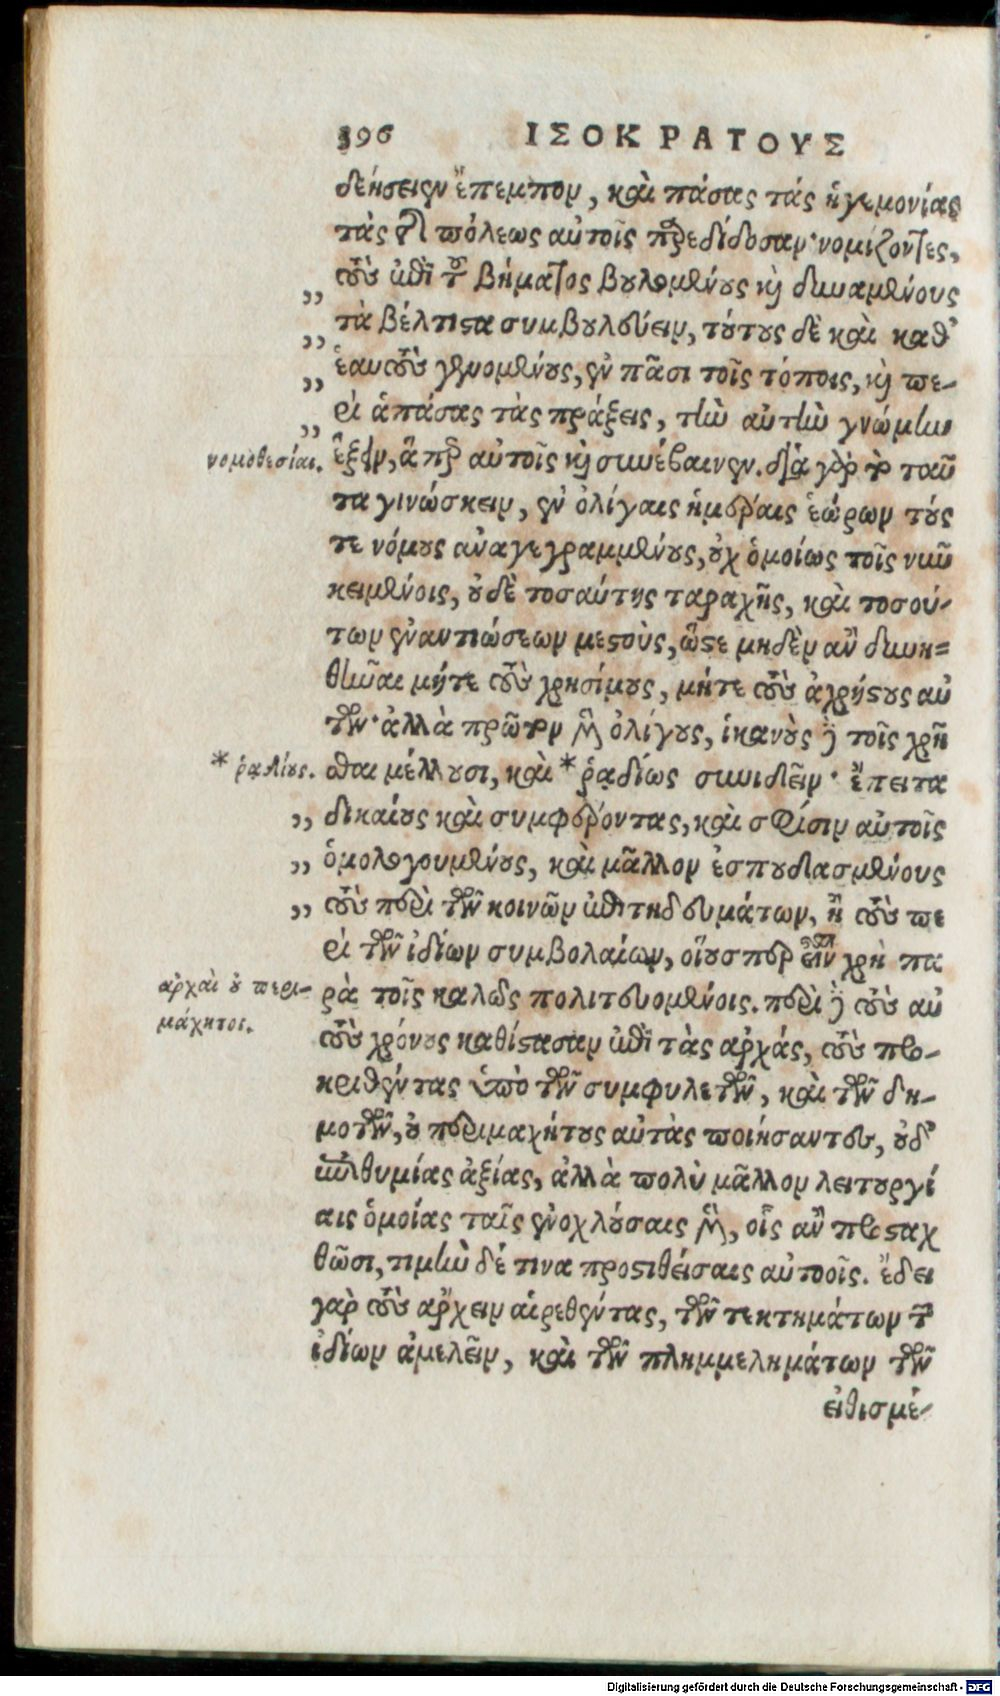 396 ΙΣΟΚΡΑΤΟΥΣ
δεήσειεν ἔπεμπον, καὶ πάσας τάς ἡγεμονίας
τὰς τῆς πόλεως αὐτοῖς παρεδίδοσαν· νομίζοντες,
τοὺς ἐπὶ τοῦ βήματος βουλομένους καὶ δυναμένους
τὰ βέλτιστα συμβουλεύειν, τούτους δὲ καὶ καθ᾽
ἑαυτοὺς γενομένους, ἐν πᾶσι τοῖς τόποις, καὶ πε-
ρὶ ἁπάσας τὰς πράξεις, τὴν αὐτὴν γνώμην
νομοθεσίαι. ἕξειν, ἅπερ αὐτοῖς καὶ συνέβαινεν. διὰ γὰρ τὸ ταῦ
τα γινώσκειν, ἐν ὀλίγαις ἡμέραις ἑώρων τούς
τε νόμους ἀναγεγραμμένους, οὐχ ὁμοίως τοῖς νῦν
κειμένοις, οὐδὲ τοσαύτης ταραχῆς, καὶ τοσού-
των ἐναντιώσεων μεστοὺς, ὥστε μηδὲν ἂν δυνη-
θῆναι μήτε τοὺς χρησίμους, μήτε τοὺς ἀχρήστους αὐ
τῶν· ἀλλὰ πρῶτον μὲν ὀλίγους, ἱκανοὺς δὲ τοῖς χρῆ
* ῥᾳδίους. σθαι μέλλουσι, καὶ * ῥᾳδίως συνιδεῖν· ἔπειτα
„ δικαίους καὶ συμφέροντας, καὶ σφίσιν αὐτοῖς
„ ὁμολογουμένους, καὶ μᾶλλον ἐσπουδασμένους
„ τοὺς περὶ τῶν κοινῶν ἐπιτηδευμάτων, ἢ τοὺς πε
ρὶ τῶν ἰδίων συμβολαίων, οἵουσπερ εἶναι χρὴ πα
ἀρχαὶ οὐ περι- ρὰ τοῖς καλῶς πολιτευομένοις. περὶ δὲ τοὺς αὐ
μάχητοι. τοὺς χρόνους καθίστασαν ἐπὶ τὰς ἀρχάς, τοὺς προ-
κριθέντας ὑπὸ τῶν συμφυλετῶν, καὶ τῶν δη-
μοτῶν, οὐ περιμαχήτους αὐτὰς ποιήσαντες, οὐδ᾽
ἐπιθυμίας ἀξίας, ἀλλὰ πολὺ μᾶλλον λειτουργί
αις ὁμοίας ταῖς ἐνοχλούσαις μὲν, οἷς ἂν προσταχ
θῶσι, τιμὴν δέ τινα προστιθείσαις αὐτοῖς. ἔδει
γὰρ τοὺς ἄρχειν αἱρεθέντας, τῶν τε κτημάτων τῶν
ἰδίων ἀμελεῖν, καὶ τῶν πλημμελημάτων τῶν
εἰθισμέ-
Digitalisierung gefördert durch die Deutsche Forschungsgemeinschaft - DFG